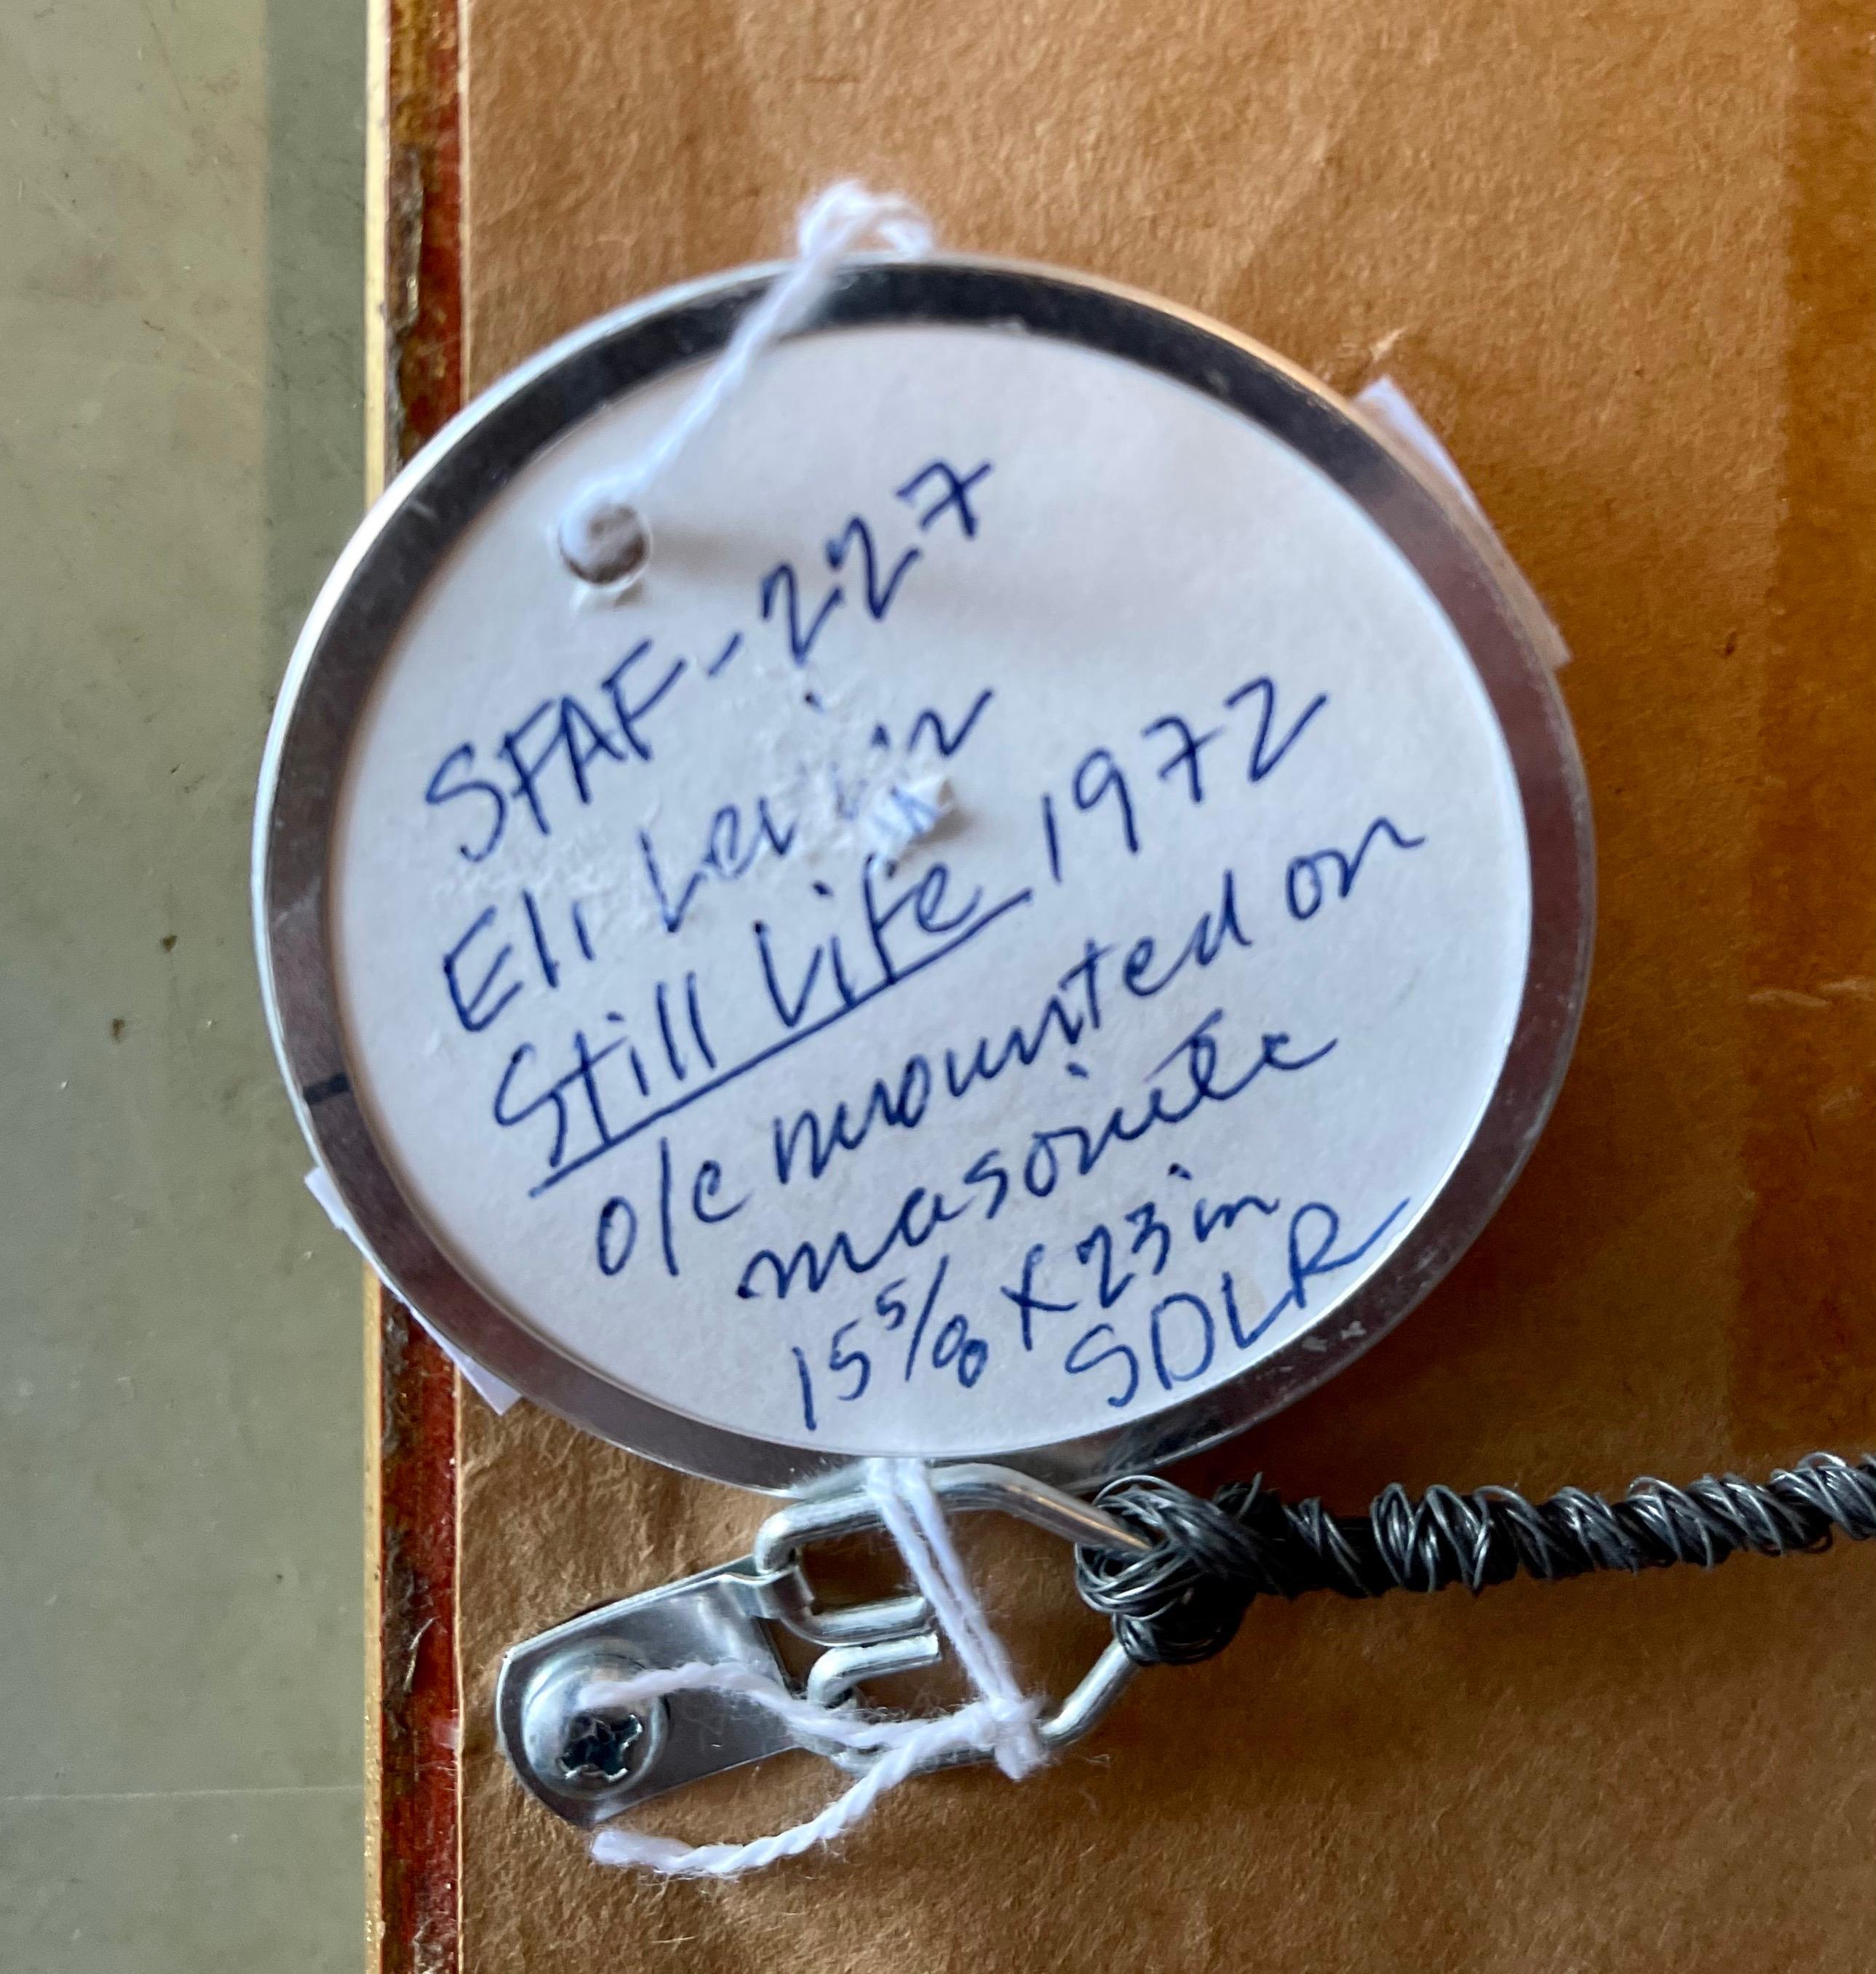 SFAF-227
Eli Levin
Still Life 1972
o/c mounted on
masonite
15 5/8 X 23 in
SDLR